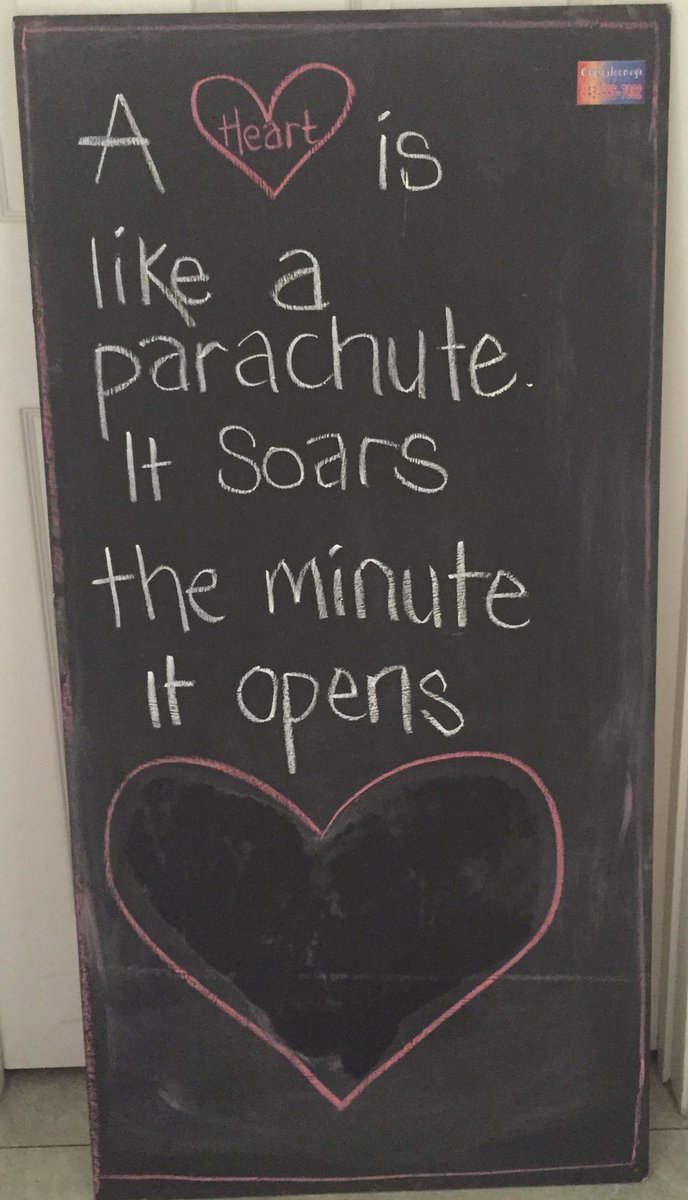 A Heart is
like a
parachute.
It Soars
the minute
it opens